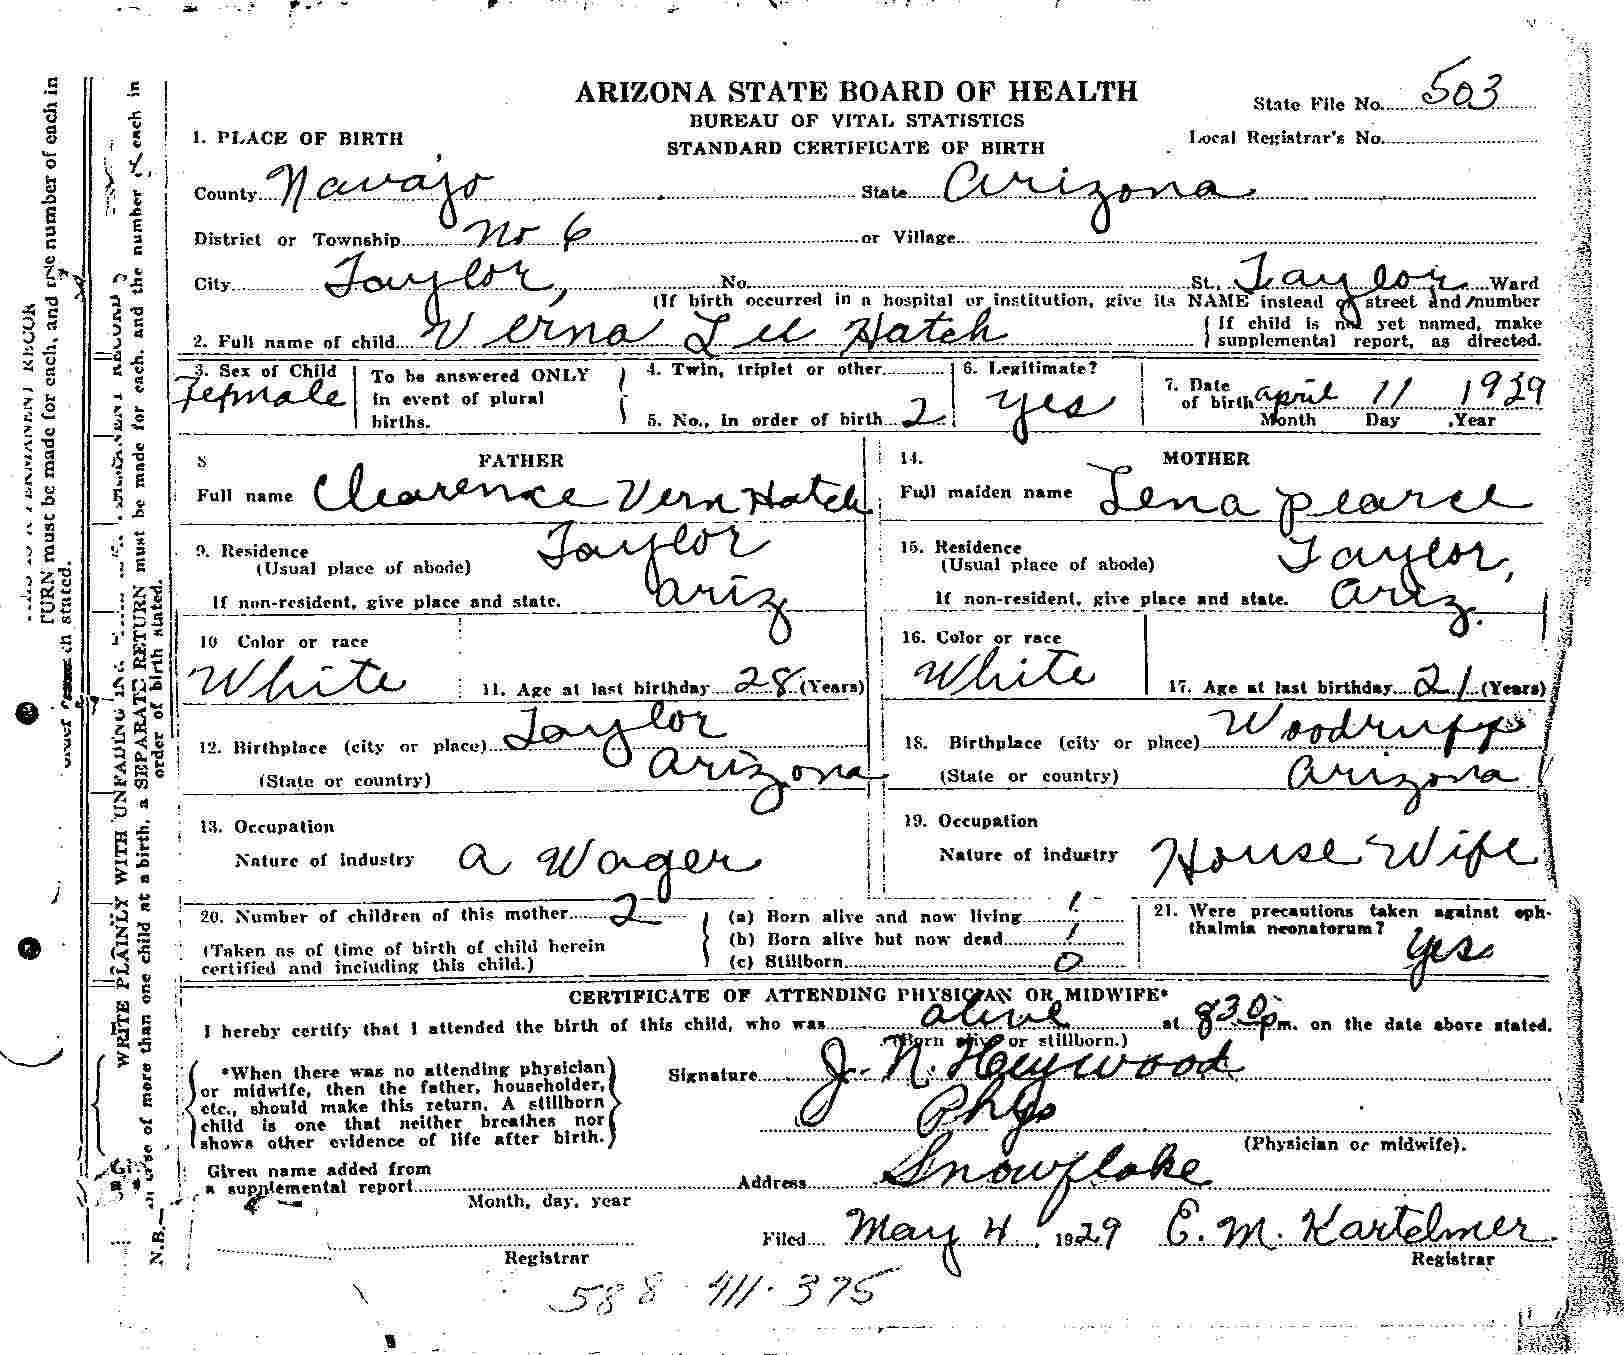 ARIZONA STATE BOARD OF HEALTH
BUREAU OF VITAL STATISTICS
STANDARD CERTIFICATE OF BIRTH
State File No. 503
Local Registrar's No.
1. PLACE OF BIRTH
County Navajo State Arizona
District or Township No 6 or Village
City Taylor, No. St., Taylor Ward
(If birth occurred in a hospital or institution, give its NAME instead of street and number
2. Full name of child Verna Lee Hatch
If child is not yet named, make supplemental report, as directed.
3. Sex of Child Female
To be answered ONLY in event of plural births.
4. Twin, triplet or other
5. No., in order of birth 2
6. Legitimate? yes
7. Date of birth april 11 1929
Month Day Year
8 FATHER
Full name Clearence Vern Hatch
9. Residence Taylor
(Usual place of abode) Ariz
If non-resident, give place and state.
10 Color or race White
11. Age at last birthday 28 (Years)
12. Birthplace (city or place) Taylor
(State or country) Arizona
13. Occupation
Nature of industry a Wager
14. MOTHER
Full maiden name Lena Pearce
15. Residence Taylor,
(Usual place of abode) Ariz.
If non-resident, give place and state.
16. Color or race White
17. Age at last birthday 21 (Years)
18. Birthplace (city or place) Woodruff
(State or country) Arizona
19. Occupation
Nature of industry House Wife
20. Number of children of this mother 2
(Taken as of time of birth of child herein certified and including this child.)
(a) Born alive and now living 1
(b) Born alive but now dead 1
(c) Stillborn 0
21. Were precautions taken against ophthalmia neonatorum? yes
CERTIFICATE OF ATTENDING PHYSICIAN OR MIDWIFE*
I hereby certify that I attended the birth of this child, who was alive at 8 30 pm. on the date above stated.
(Born alive or stillborn.)
*When there was no attending physician
or midwife, then the father, householder,
etc., should make this return. A stillborn
child is one that neither breathes nor
shows other evidence of life after birth.
Signature J. N. Heywood
Phys
(Physician or midwife).
Given name added from
a supplemental report
Month, day, year
Address Snowflake
Filed May 4, 1929 E. M. Kartchner
Registrar Registrar
588-411-375
WRITE PLAINLY WITH UNFADING INK
N.B.— In case of more than one child at a birth, a SEPARATE RETURN must be made for each, and the number of each in
order of birth stated.
TURN must be made for each, and the number of each in